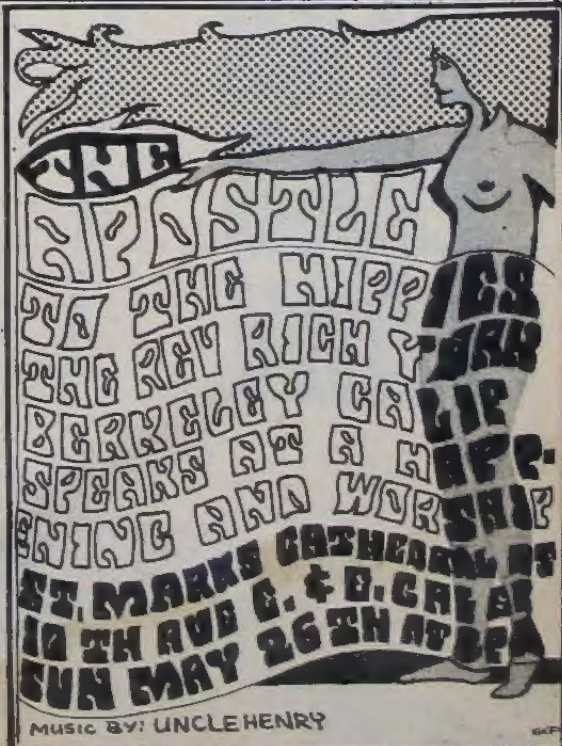 THE
APOSTLE
TO THE HIPPIES
THE REV RICH YORK
BERKELEY CALIF
SPEAKS AT A HAPP-
ENING AND WORSHIP
ST. MARKS CATHEDRAL AT
10TH AVE E. & E. GALER
SUN MAY 26TH AT
MUSIC BY: UNCLE HENRY